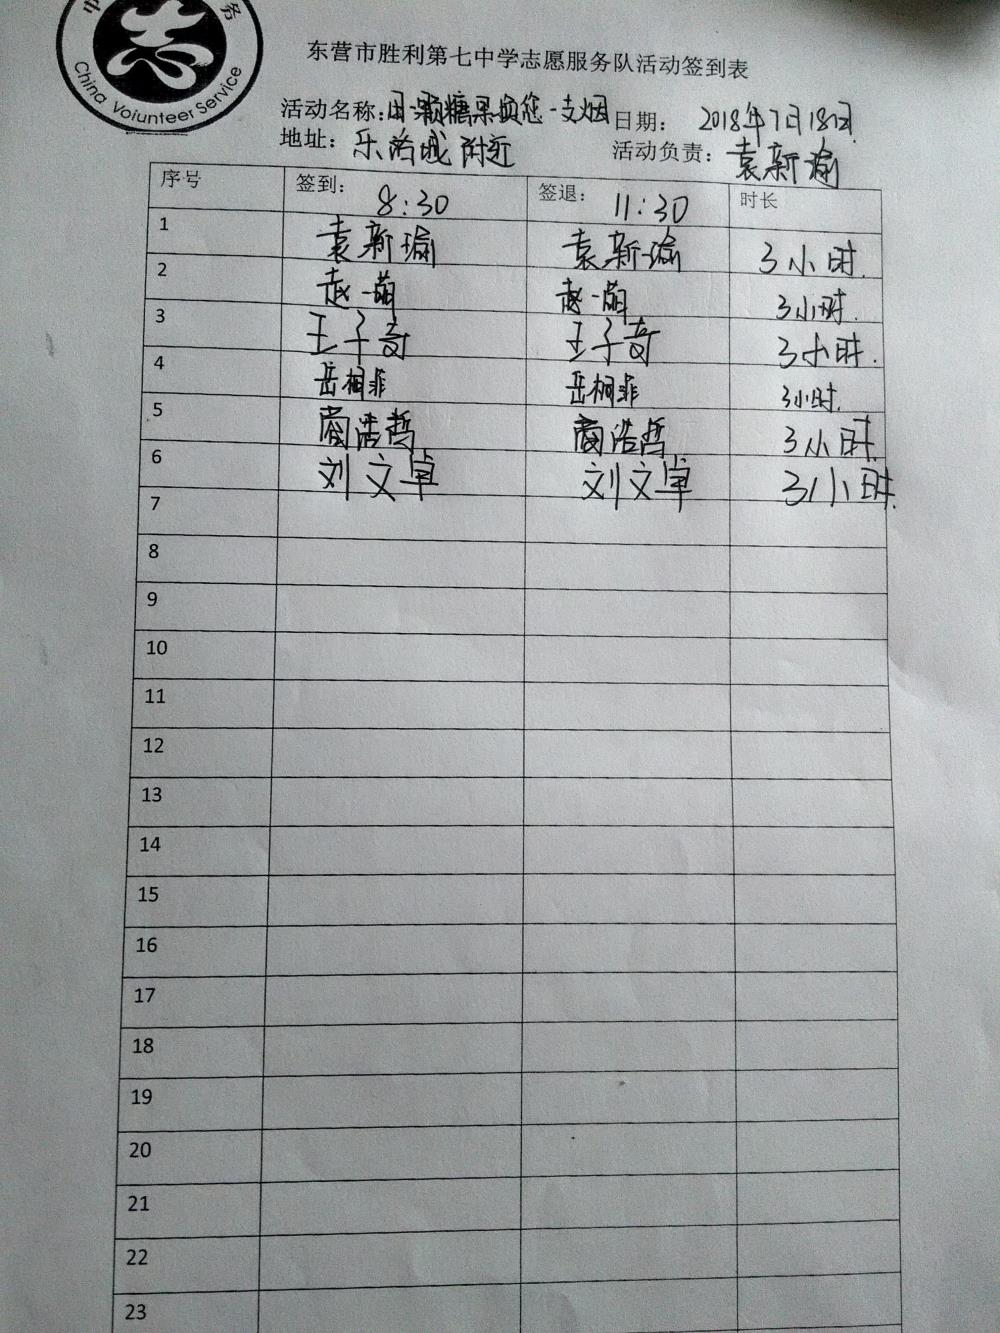 中 务
China Volunteer Service
东营市胜利第七中学志愿服务队活动签到表
活动名称:用一颗糖果换您一支烟 日期: 2018年7月18日
地址: 乐活城附近 活动负责: 袁新瑜
序号 签到: 8:30 签退: 11:30 时长
1 袁新瑜 袁新瑜 3小时.
2 赵一萌 赵一萌 3小时.
3 王子奇 王子奇 3小时.
4 岳桐非 岳桐非 3小时.
5 商浩哲 商浩哲 3小时.
6 刘文卓 刘文卓 3小时.
7
8
9
10
11
12
13
14
15
16
17
18
19
20
21
22
23